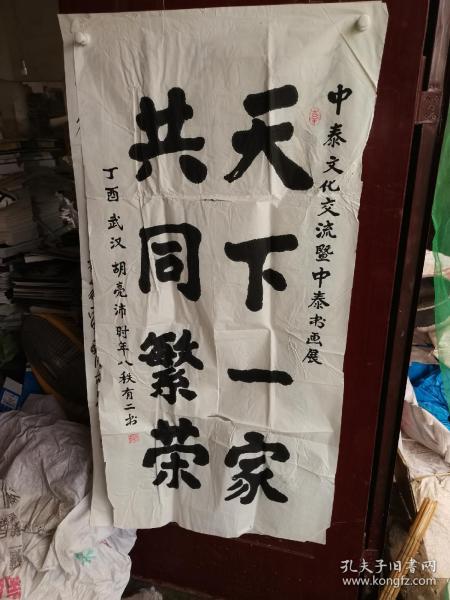 中泰文化交流暨中泰书画展
天下一家
共同繁荣
丁酉 武汉 胡亮沛 时年八秩有二书
孔夫子旧书网
www.kongfz.com